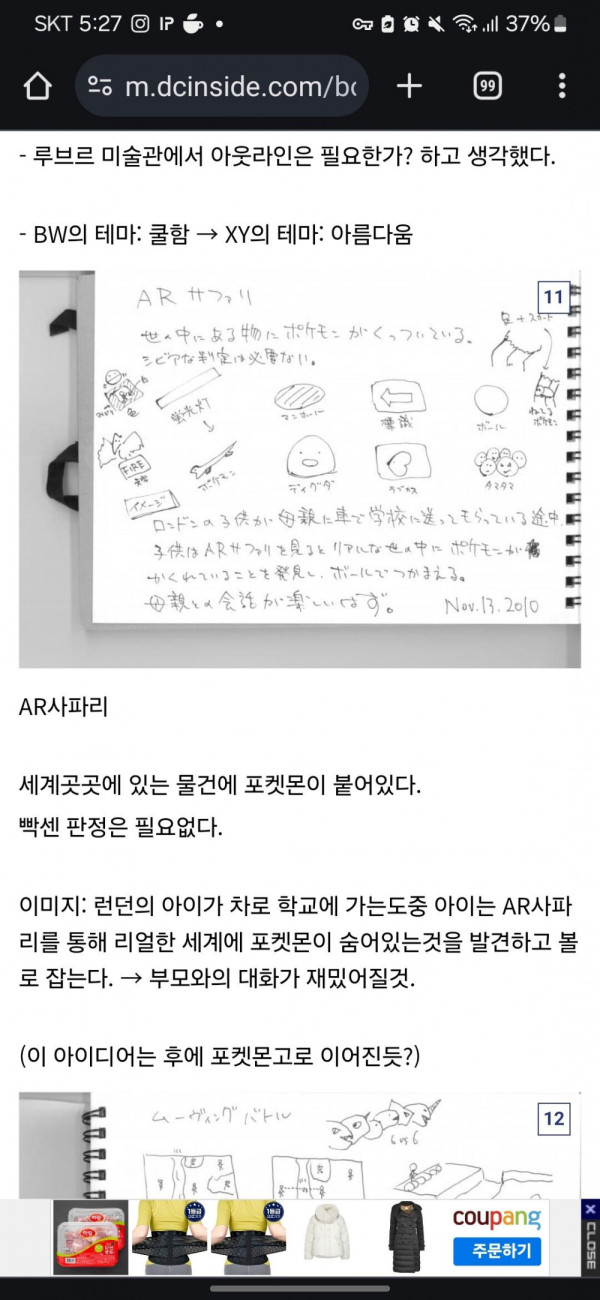 SKT 5:27 IP 37%
m.dcinside.com/bc 99
- 루브르 미술관에서 아웃라인은 필요한가? 하고 생각했다.
- BW의 테마: 쿨함 → XY의 테마: 아름다움
11
ARサファリ
世の中にある物にポケモンがくっついている。
シビアな判定は必要ない。
蛍光灯 マンホール 標識 ボール ねてるポケモン
FIRE
ポケモン ディグダ ラブカス タマタマ
イメージ
ロンドンの子供が母親に車で学校に送ってもらっている途中、
子供はARサファリを見るとリアルな世の中にポケモンが
かくれていることを発見し、ボールでつかまえる。
母親との会話が楽しいはず。 Nov.13.2010
AR사파리
세계곳곳에 있는 물건에 포켓몬이 붙어있다.
빡센 판정은 필요없다.
이미지: 런던의 아이가 차로 학교에 가는도중 아이는 AR사파
리를 통해 리얼한 세계에 포켓몬이 숨어있는것을 발견하고 볼
로 잡는다. → 부모와의 대화가 재밌어질것.
(이 아이디어는 후에 포켓몬고로 이어진듯?)
12
ムーヴィングバトル
6 vs 6
1등급
1등급
coupang
주문하기
X CLOSE